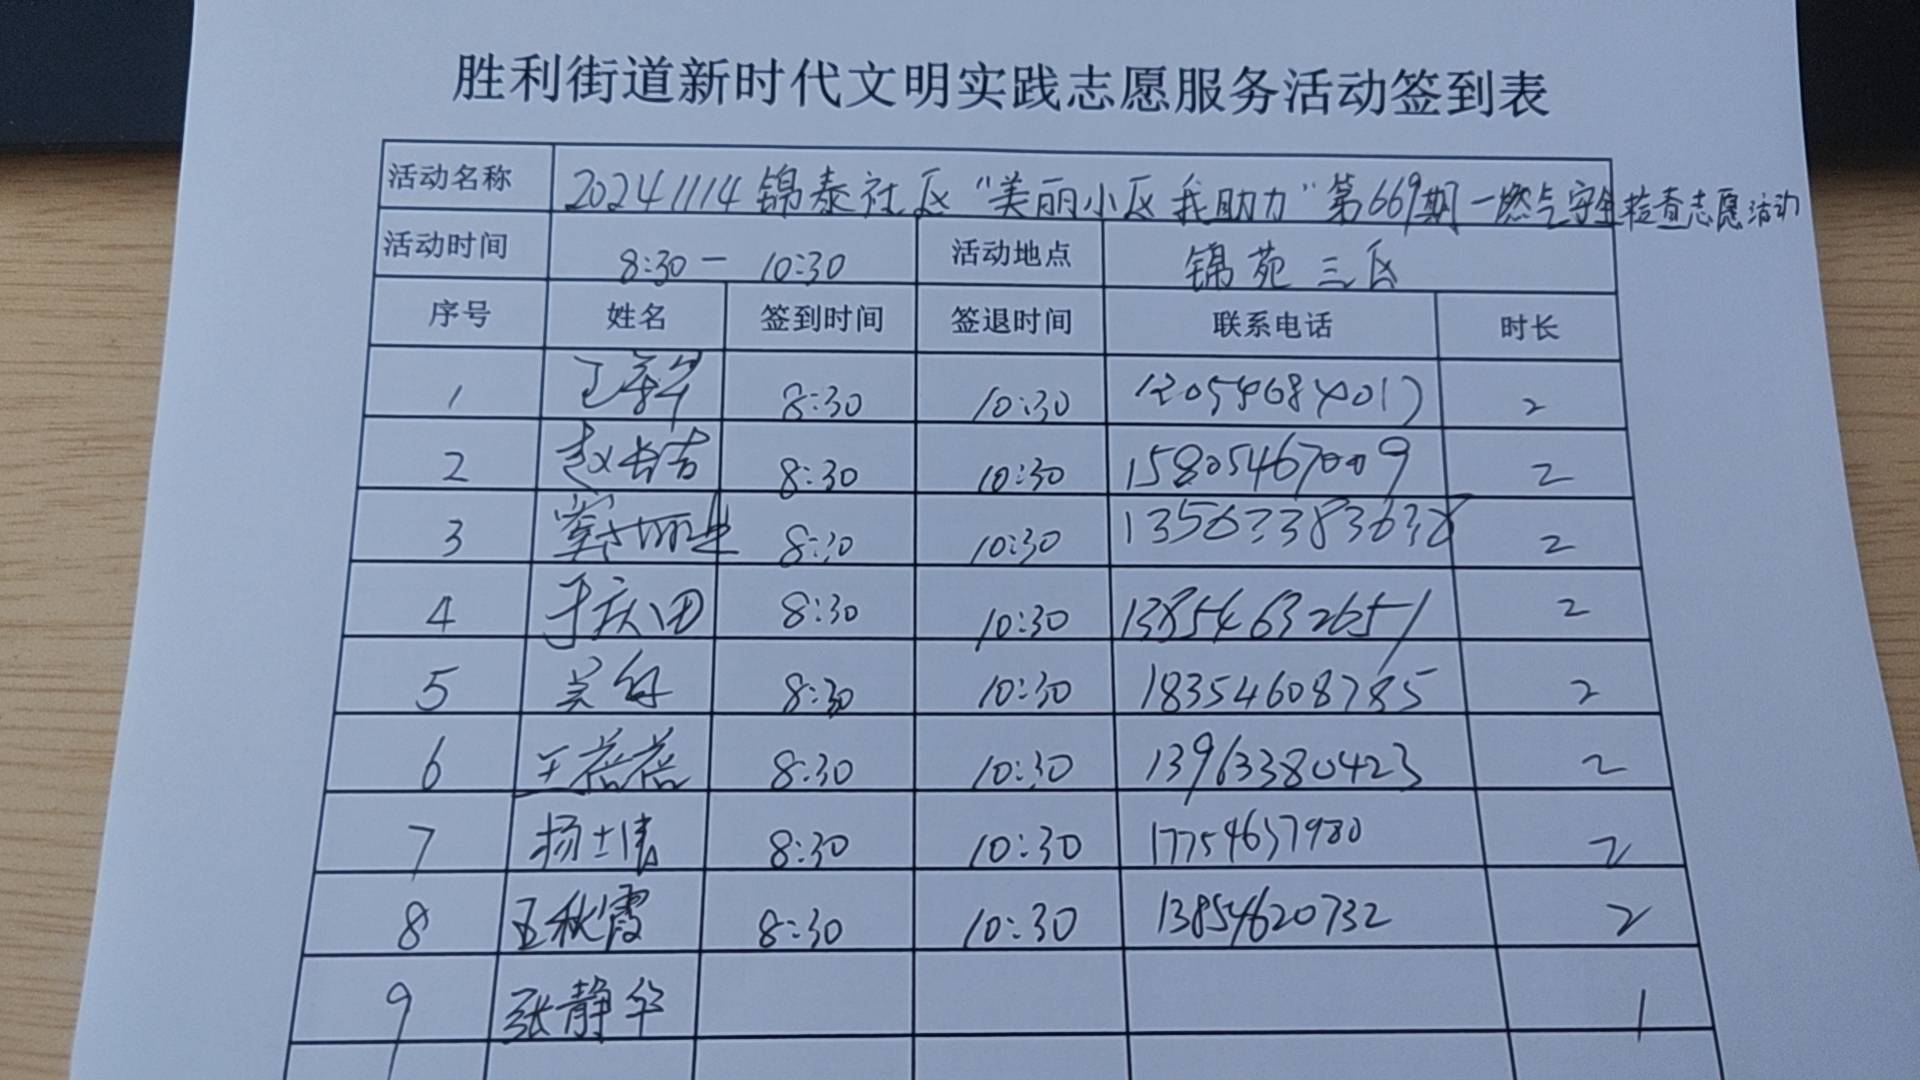 胜利街道新时代文明实践志愿服务活动签到表
活动名称 20241114锦泰社区“美丽小区我助力”第669期一燃气安全检查志愿活动
活动时间 8:30－10:30 活动地点 锦苑三区
序号 姓名 签到时间 签退时间 联系电话 时长
1 8:30 10:30 2
2 赵长吉 8:30 10:30 15805467009 2
3 8:30 10:30 13563383638 2
4 于庆田 8:30 10:30 13854632651 2
5 8:30 10:30 18354608785 2
6 王蓓蓓 8:30 10:30 13963380423 2
7 杨士倩 8:30 10:30 17754637980 2
8 王秋霞 8:30 10:30 13854620732 2
9 张静华 1